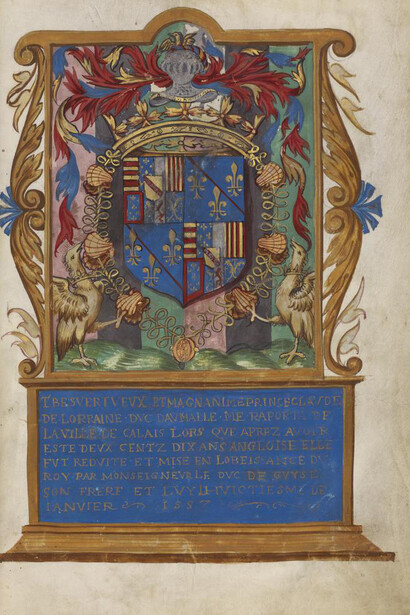 TRESVERTVEUX ET MAGNANIME PRINCE CLAVDE
DE LORRAINE DVC DAVMALLE ME RAPORTA DE
LA VILLE DE CALAIS LORS QVE APREZ AVOIR
ESTE DEVX CENTZ DIX ANS ANGLOISE ELLE
FVT REDVITE ET MISE EN LOBEISSANCE DV
ROY PAR MONSEIGNEVR LE DVC DE GVYSE
SON FRERE ET LVY LE HVICTIESME DE
IANVIER 1557